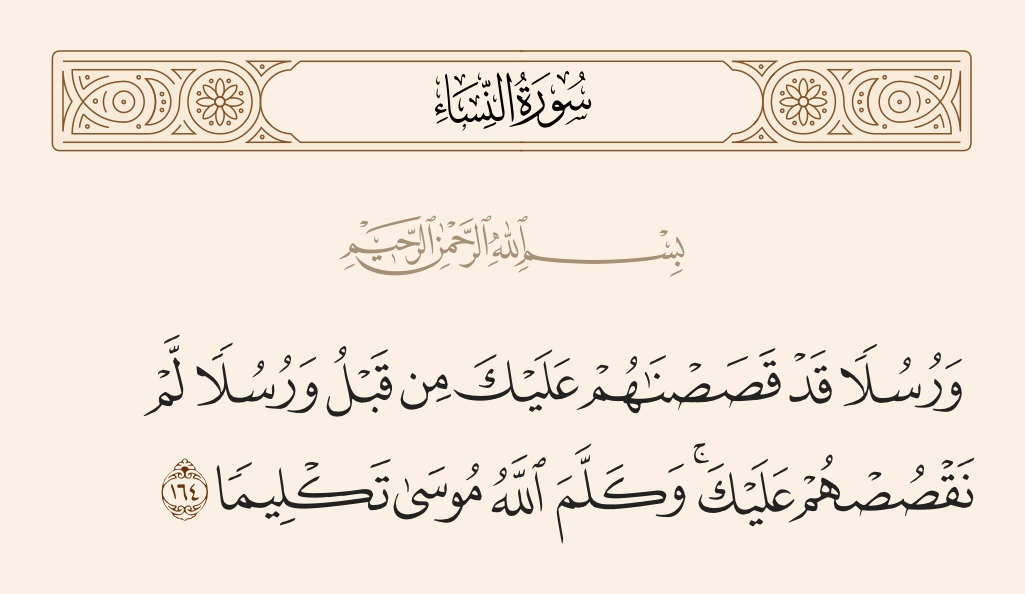 سُورَةُ النِّسَاءِ
بِسْمِ ٱللَّهِ ٱلرَّحْمَٰنِ ٱلرَّحِيمِ
وَرُسُلًا قَدْ قَصَصْنَٰهُمْ عَلَيْكَ مِن قَبْلُ وَرُسُلًا لَّمْ
نَقْصُصْهُمْ عَلَيْكَ ۚ وَكَلَّمَ ٱللَّهُ مُوسَىٰ تَكْلِيمًا ١٦٤